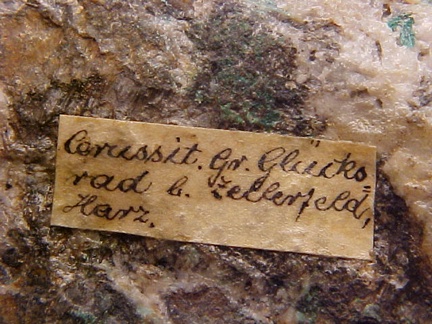 Cerussit. Gr. Glücks=
rad b. Zellerfeld,
Harz.